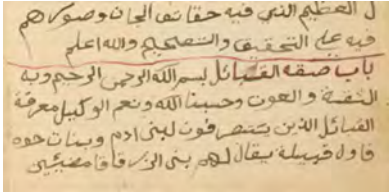 ل العظيم الذي فيه حقائق الجان وصورهم
فيه على التحقيق والتصحيح والله اعلم
باب صفة القبائل بسم الله الرحمن الرحيم وبه
الثقة والعون وحسبنا الله ونعم الوكيل معرفة
القبائل الذين يتصرفون لبني ادم وبنات حوه
فاول قبيلة يقال لهم بني